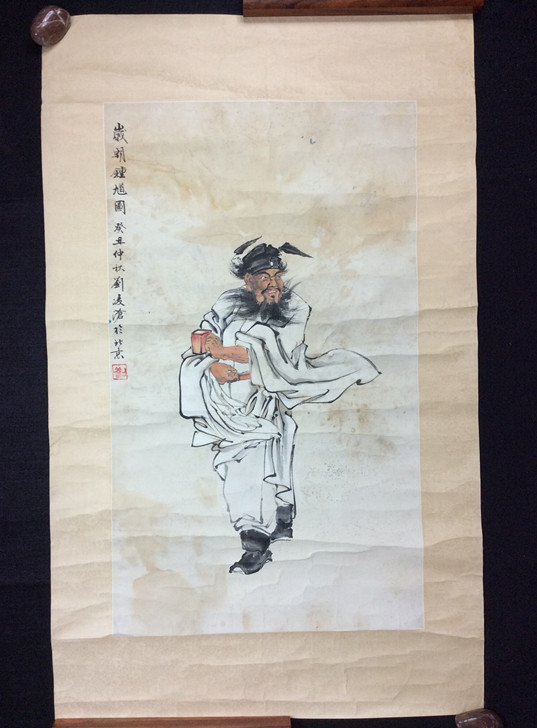 歲朝鍾馗圖 癸丑仲秋劉凌滄於北京